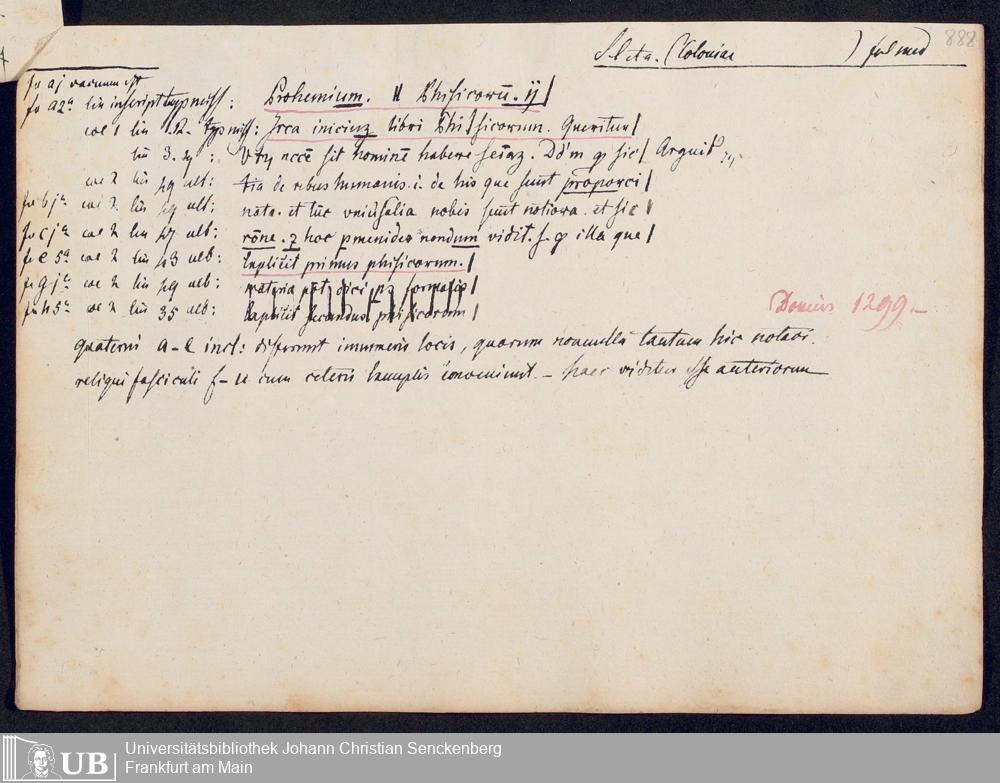 888
S. l. et a. (Coloniae ) fol med
fo aj vacuum est
fo a2a lin inscript typ miss: Prohemium. Phisicorū. ij |
col 1 lin 1.2. typ miss: Irca iniciuz libri Phi|sicorum. Queritur |
lin 3. 4 : Vtrū nccē sit hominē habere sciāz. Dd'm ꝙ sic | Arguit
col 2 lin 49 ult: tia de rebus humanis .i. de his que sunt proporci |
fo b ja col 2 lin 49 ult: nata. et tūc vniusalia nobis sunt notiora. et sic |
fo c ja col 2 lin 47 ult: rōne. ꝫ hoc pmenides nondum vidit. s. ꝙ illa que |
fo e 5a col 2 lin 43 ult: Explicit primus phisicorum. |
fo g ja col 2 lin 49 ult: materia pōt dici formatio |
fo h 5a col 2 lin 35 ult: Explicit secundus phisicorum |
Doneus 1299.—
Quaterni a-e incl: differunt innumeris locis, quorum nonnulla tantum hic notavi.
reliqui fasciculi f-u cum ceteris exemplis conveniunt. — haec videtur esse anteriorum
Universitätsbibliothek Johann Christian Senckenberg
UB Frankfurt am Main